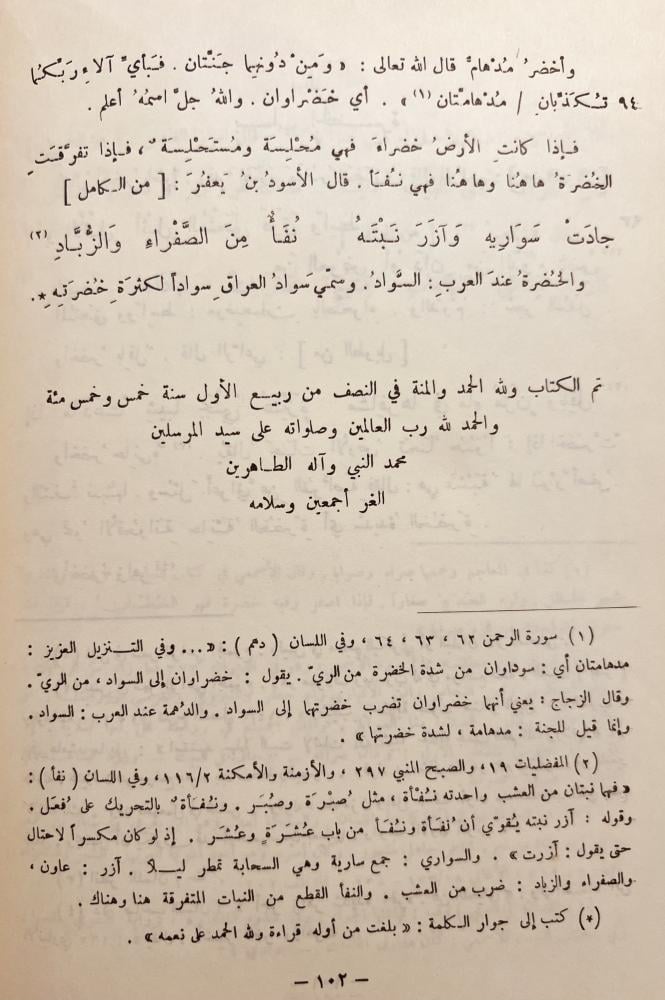 وأخضرُ مُدْهامٌّ قال الله تعالى : « وَمِنْ دُونِهِما جَنَّتان . فَبأيِّ آلاءِ رَبِّكُما
٩٤ تُكَذِّبانِ / مُدْهامَّتان (١) » . أي خَضْراوان . واللهُ جلَّ اسمُهُ أعلم .
فإذا كانتِ الأرضُ خضراءَ فهي مُحْلِسَة ومُستَحْلِسَة ٌ ، فإذا تفرَّقَتِ
الخُضرَةُ هاهُنا وهاهُنا فهي نُفَأ . قال الأسودُ بنُ يَعفُرَ : [ من الكامل ]
جادَتْ سَوَارِيه وَآزَرَ نَبْتَهُ نُفَأٌ مِنَ الصَّفْراءِ وَالزُّبَّادِ (٢)
والخُضرةُ عندَ العربِ : السَّوادُ . وسمّي سَوادُ العراقِ سواداً لكثرَةِ خُضرَتِهِ * .
تم الكتاب ولله الحمد والمنة في النصف من ربيع الأول سنة خمس وخمس مئة
والحمد لله رب العالمين وصلواته على سيد المرسلين
محمد النبي وآله الطاهرين
الغر أجمعين وسلامه
(١) سورة الرحمن ٦٢ ، ٦٣ ، ٦٤ ، وفي اللسان ( دهم ) : « ... وفي التنزيل العزيز :
مدهامتان أي : سوداوان من شدة الخضرة من الريّ . يقول : خضراوان إلى السواد ، من الريّ .
وقال الزجاج : يعني أنهما خضراوان تضرب خضرتهما إلى السواد . والدُهمة عند العرب : السواد .
وإنما قيل للجنة : مدهامة ، لشدة خضرتها » .
(٢) المفضليات ١٩ ، والصبح المنبي ٢٩٧ ، والأزمنة والأمكنة ١١٦/٢ ، وفي اللسان ( نفأ ) :
« فهما نبتان من العشب واحدته نُفْأة ، مثل صُبْرَة وصُبَر . ونُفَأة ٌ بالتحريك على فُعَل .
وقوله : آزر نبته يُقوّي أن نُفَأة ونُفَأ من باب عُشَرَةٍ وعُشَر . إذ لو كان مكسراً لاحتال
حتى يقول : آزرت » . والسواري : جمع سارية وهي السحابة تمطر ليلا . آزر : عاون ،
والصفراء والزباد : ضرب من العشب . والنفأ القطع من النبات المتفرقة هنا وهناك .
(*) كتب إلى جوار الكلمة : « بلغت من أوله قراءة ولله الحمد على نعمه » .
— ١٠٢ —